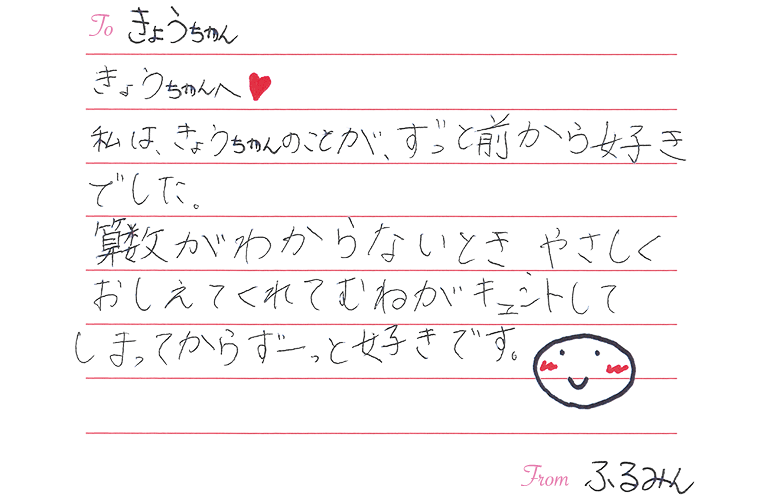 To きょうちゃん
きょうちゃんへ
私は、きょうちゃんのことが、ずっと前から好き
でした。
算数がわからないとき やさしく
おしえてくれてむねがキュントして
しまってからずーっと好きです。
From ふるみん